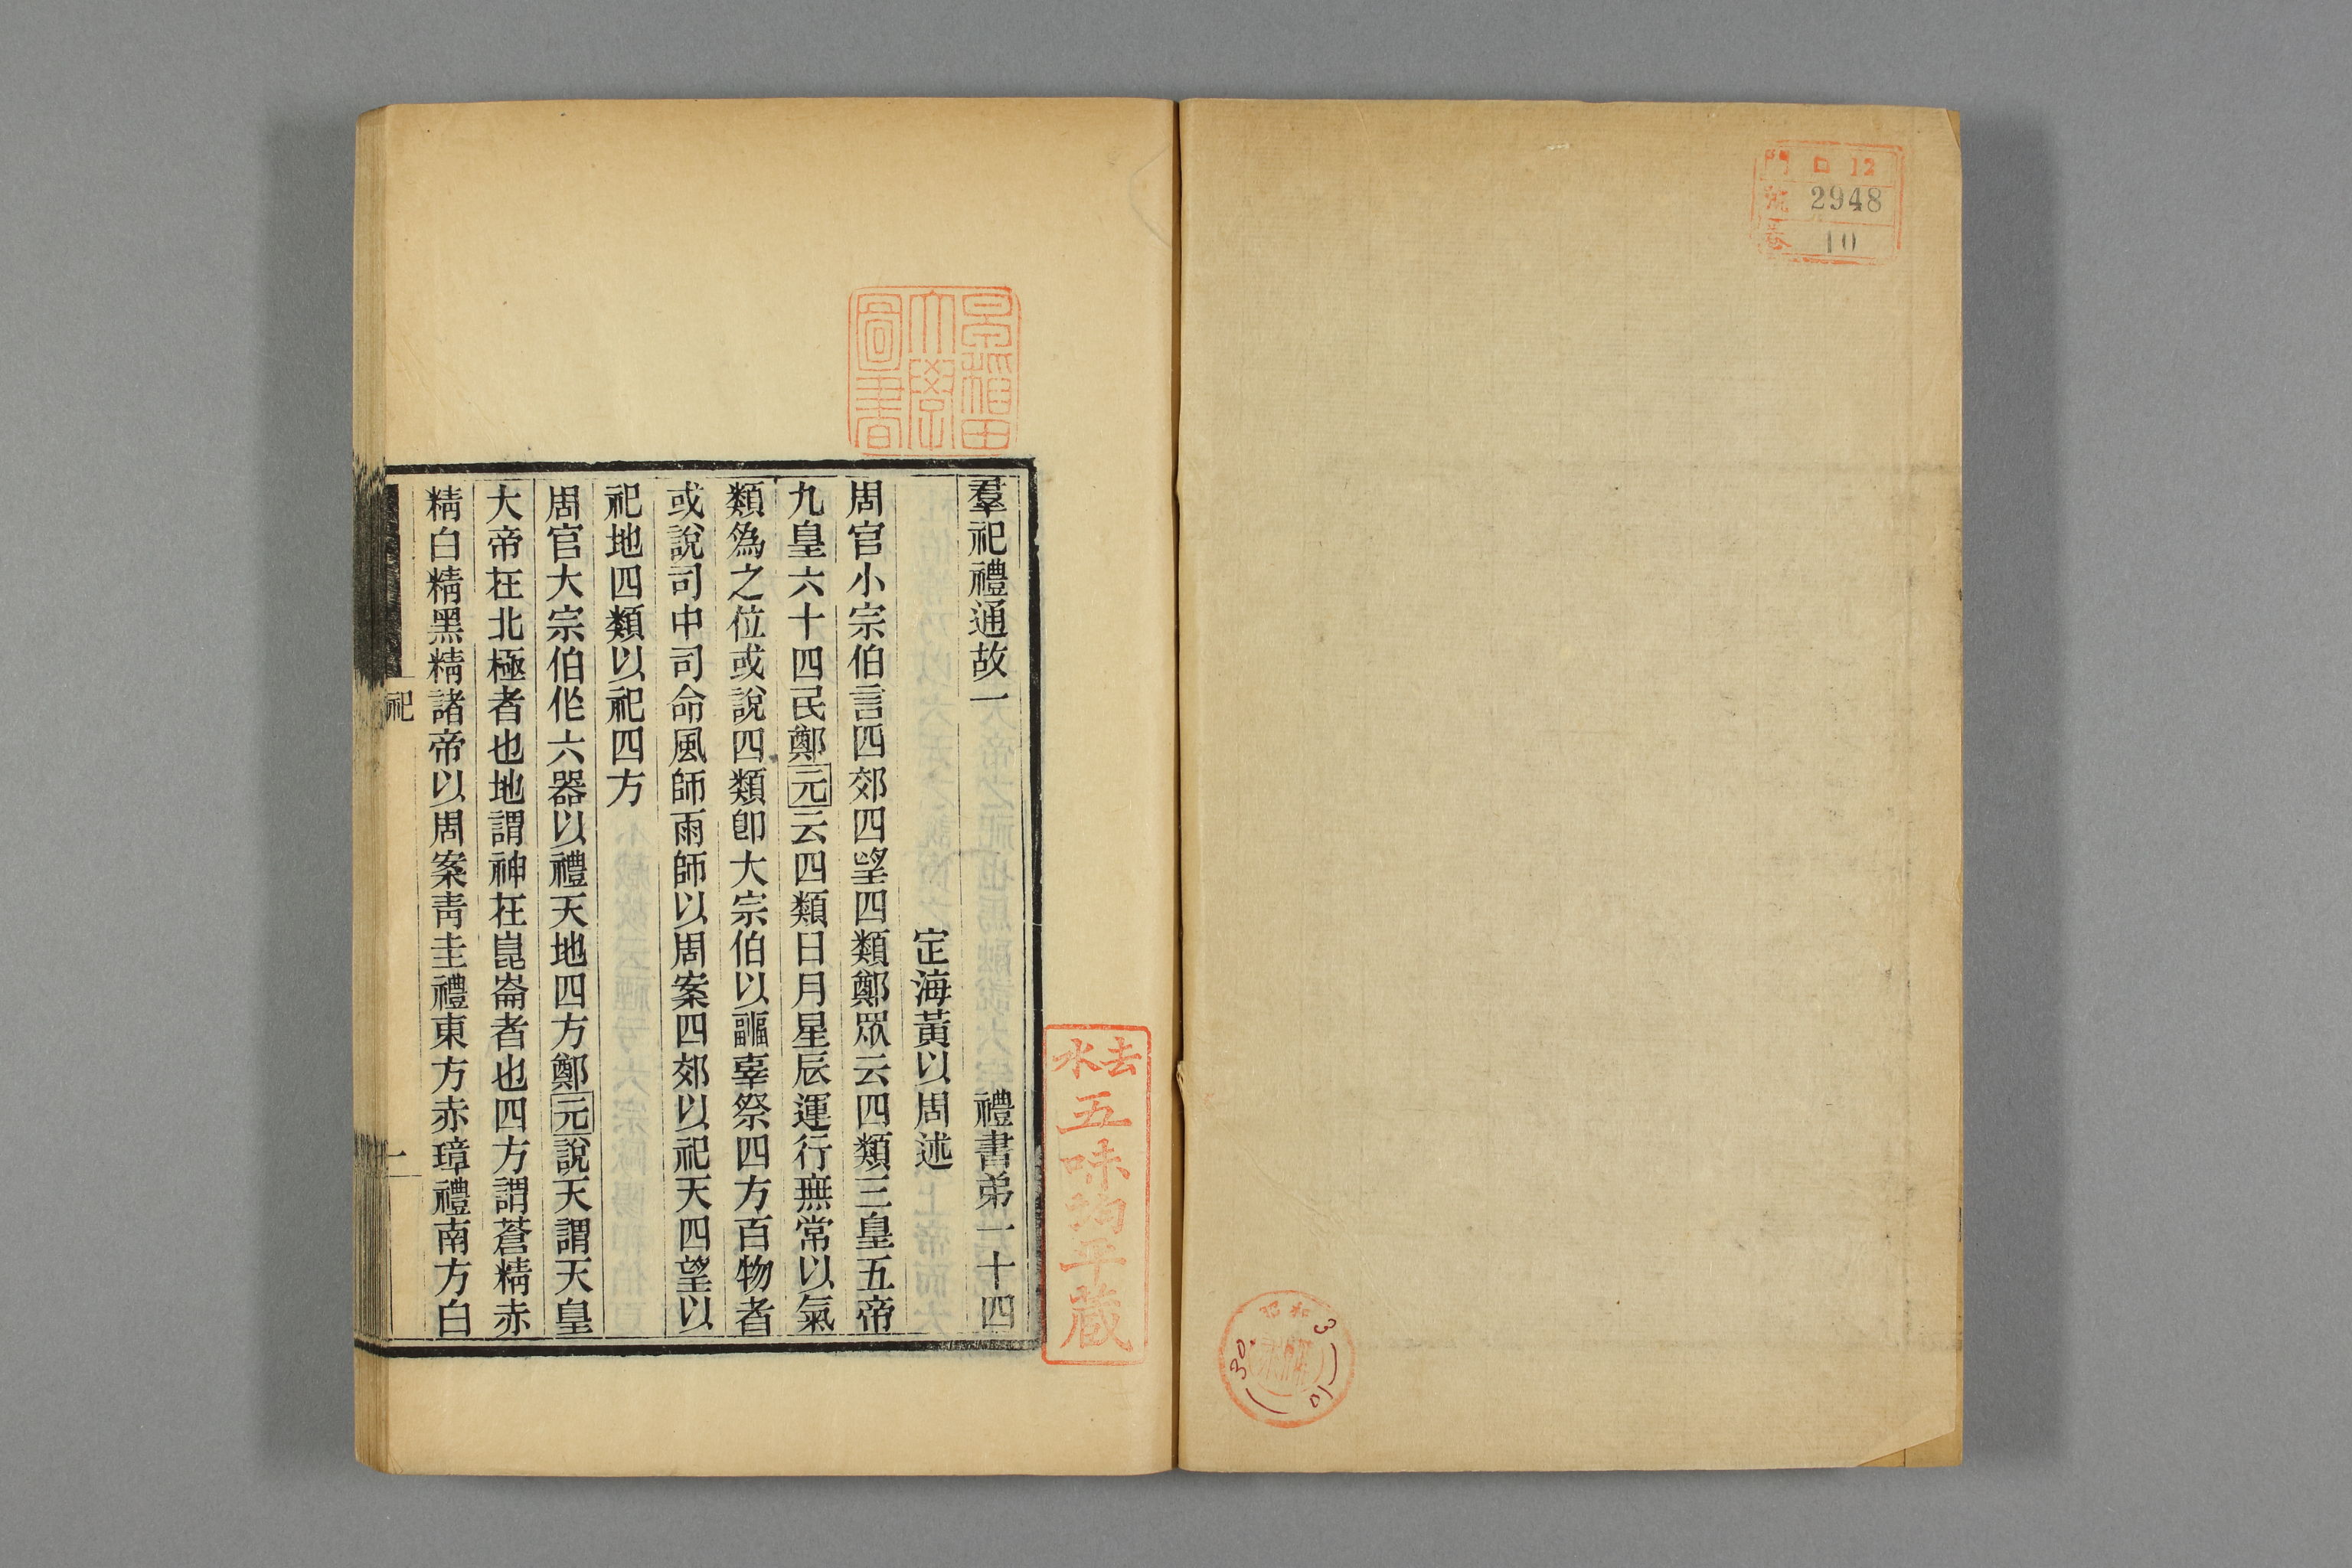 門 口 12
號 2948
卷 10
昭和
3
10
30.
早稲田
大學
圖書
去水
五味均平蔵
羣祀禮通故一 禮書弟一十四
定海黃以周述
周官小宗伯言四郊四望四類鄭眾云四類三皇五帝
九皇六十四民鄭元云四類日月星辰運行無常以氣
類爲之位或說四類卽大宗伯以疈辜祭四方百物者
或說司中司命風師雨師以周案四郊以祀天四望以
祀地四類以祀四方
周官大宗伯作六器以禮天地四方鄭元說天謂天皇
大帝在北極者也地謂神在崑崙者也四方謂蒼精赤
精白精黑精諸帝以周案靑圭禮東方赤璋禮南方白
祀
一